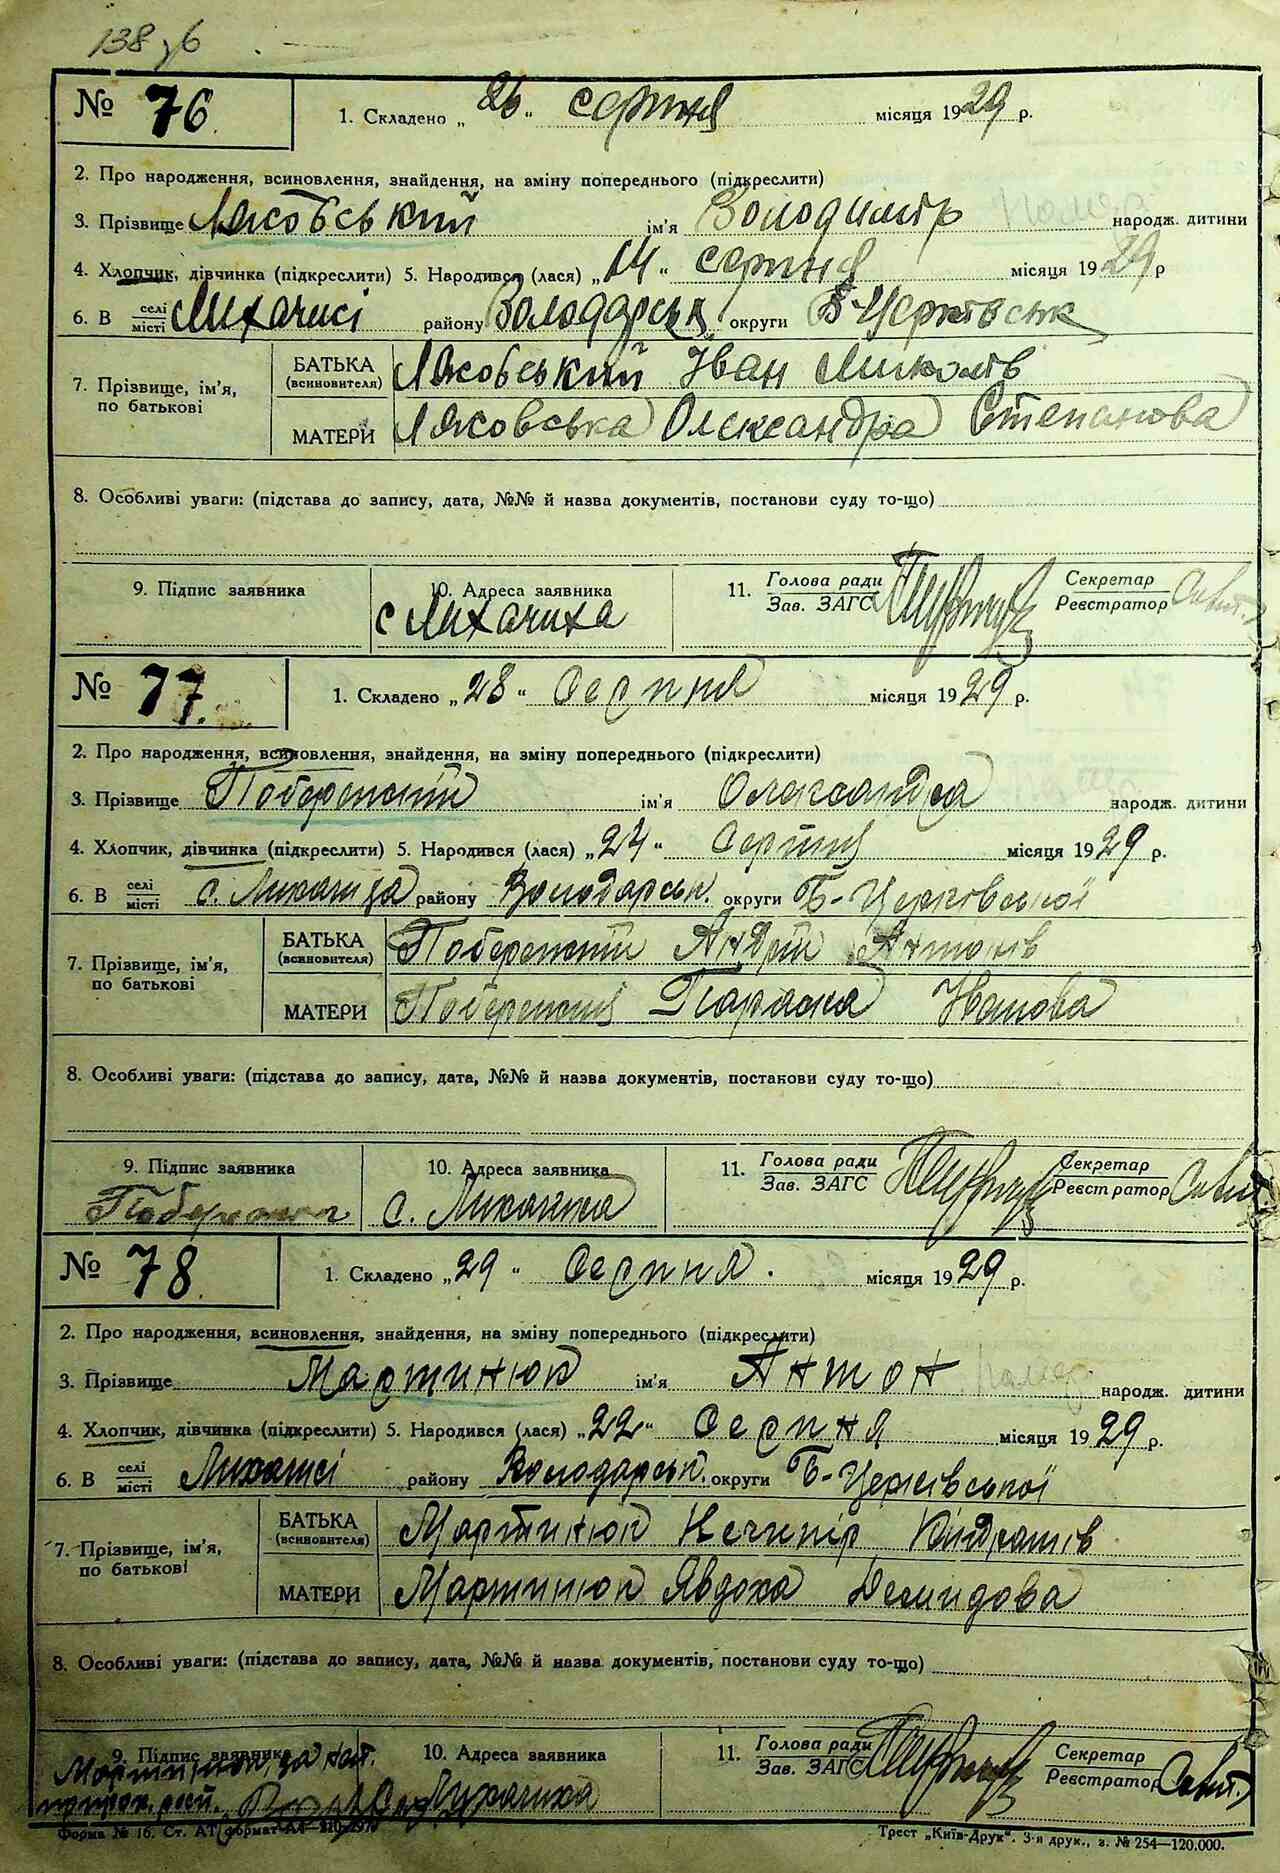 138 зб
№ 76. 1. Складено „26“ серпня місяця 1929 р.
2. Про народження, всиновлення, знайдення, на зміну попереднього (підкреслити)
3. Прізвище Ляховський ім'я Володимір Помер народж. дитини
4. Хлопчик, дівчинка (підкреслити) 5. Народився (лася) „14“ серпня місяця 1929 р
6. В селі/місті Лихачисі району Володарськ. округи Б-Церківськ
7. Прізвище, ім'я, по батькові
БАТЬКА (всиновителя) Ляховський Іван Миколів
МАТЕРИ Ляховська Олександра Степанова
8. Особливі уваги: (підстава до запису, дата, №№ й назва документів, постанови суду то-що)
9. Підпис заявника 10. Адреса заявника 11. Голова ради Секретар
Зав. ЗАГС Реєстратор
с Лихачиха
№ 77. 1. Складено „28“ Серпня місяця 1929 р.
2. Про народження, всиновлення, знайдення, на зміну попереднього (підкреслити)
3. Прізвище Побережний ім'я Олександра народж. дитини
4. Хлопчик, дівчинка (підкреслити) 5. Народився (лася) „24“ Серпня місяця 1929 р.
6. В селі/місті с. Лихачиха району Володарськ. округи Б-Церківської
7. Прізвище, ім'я, по батькові
БАТЬКА (всиновителя) Побережний Андрій Антонів
МАТЕРИ Побережня Параска Іванова
8. Особливі уваги: (підстава до запису, дата, №№ й назва документів, постанови суду то-що)
9. Підпис заявника 10. Адреса заявника 11. Голова ради Секретар
Зав. ЗАГС Реєстратор
с. Лихачиха
№ 78. 1. Складено „29“ Серпня. місяця 1929 р.
2. Про народження, всиновлення, знайдення, на зміну попереднього (підкреслити)
3. Прізвище Мартинюк ім'я Антон Помер народж. дитини
4. Хлопчик, дівчинка (підкреслити) 5. Народився (лася) „22“ Серпня місяця 1929 р.
6. В селі/місті Лихачисі району Володарськ. округи Б-Церківської
7. Прізвище, ім'я, по батькові
БАТЬКА (всиновителя) Мартинюк Нечипір Кіндратів
МАТЕРИ Мартинюк Явдоха Демидова
8. Особливі уваги: (підстава до запису, дата, №№ й назва документів, постанови суду то-що)
9. Підпис заявника 10. Адреса заявника 11. Голова ради Секретар
Зав. ЗАГС Реєстратор
Мартинюк, за
с. Лихачиха
Форма № 16. Ст. АТ формат А4
Трест „Київ-Друк“. 3-я друк., з. № 254—120.000.